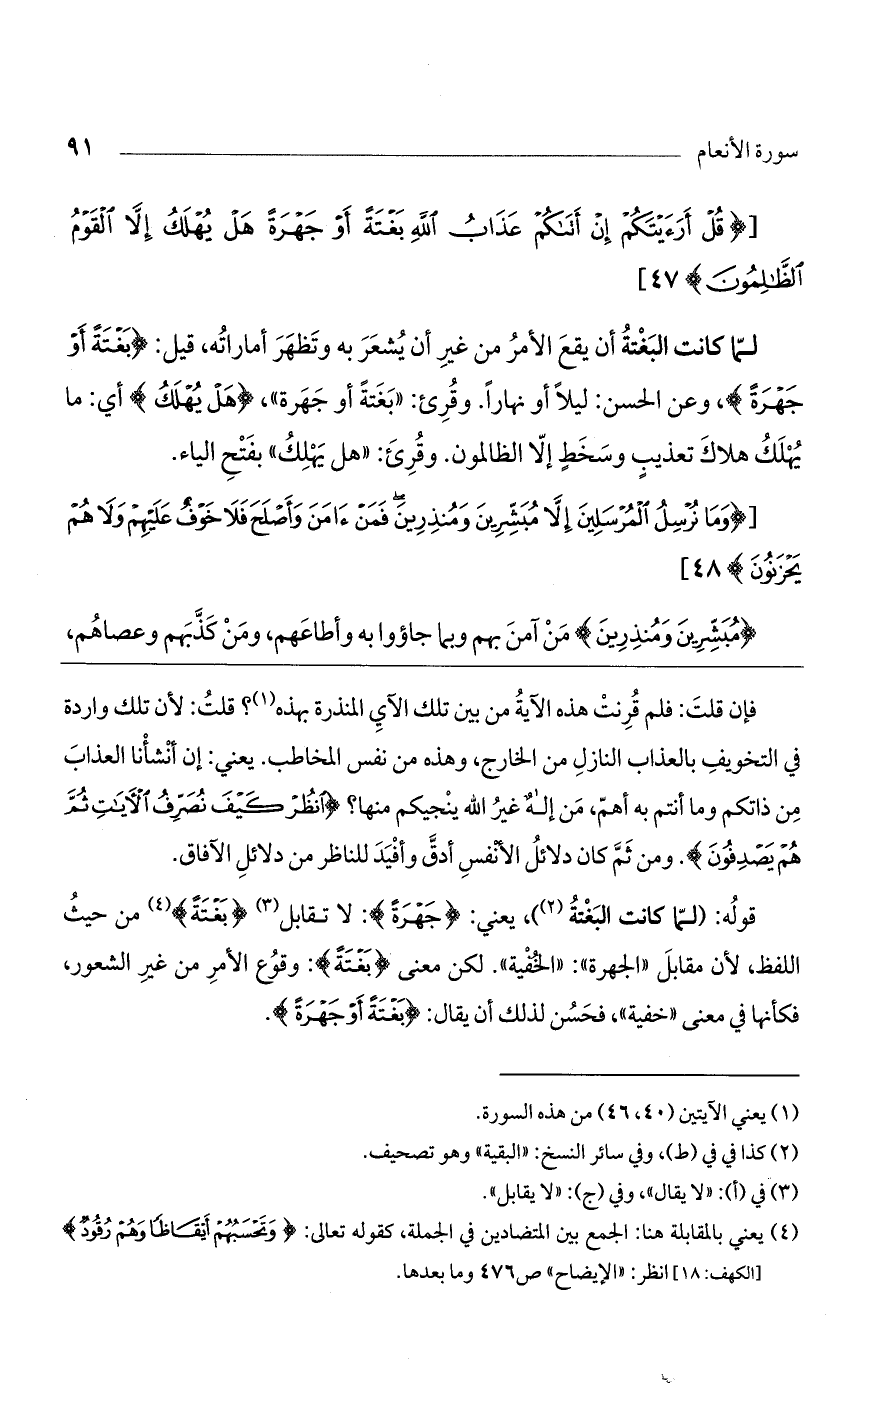 سورة الأنعام ٩١
[﴿قُلْ أَرَءَيْتَكُمْ إِنْ أَتَىٰكُمْ عَذَابُ ٱللَّهِ بَغْتَةً أَوْ جَهْرَةً هَلْ يُهْلَكُ إِلَّا ٱلْقَوْمُ
ٱلظَّٰلِمُونَ﴾ ٤٧]
لمّا كانت البَغْتةُ أن يقعَ الأمرُ من غيرِ أن يُشعَرَ به وتَظهَرَ أماراتُه، قيل: ﴿بَغْتَةً أَوْ
جَهْرَةً﴾، وعن الحسن: ليلاً أو نهاراً. وقُرِئ: «بَغَتةً أو جَهَرة»، ﴿هَلْ يُهْلَكُ﴾ أي: ما
يُهْلَكُ هلاكَ تعذيبٍ وسَخَطٍ إلّا الظالمون. وقُرِئَ: «هل يَهْلِكُ» بفَتْحِ الياء.
[﴿وَمَا نُرْسِلُ ٱلْمُرْسَلِينَ إِلَّا مُبَشِّرِينَ وَمُنذِرِينَ ۖ فَمَنْ ءَامَنَ وَأَصْلَحَ فَلَا خَوْفٌ عَلَيْهِمْ وَلَا هُمْ
يَحْزَنُونَ﴾ ٤٨]
﴿مُبَشِّرِينَ وَمُنذِرِينَ﴾ مَنْ آمنَ بهم وبما جاؤوا به وأطاعَهم، ومَنْ كَذَّبَهم وعصاهُم،
فإن قلتَ: فلم قُرِنتْ هذه الآيةُ من بين تلك الآيِ المنذرة بهذه(١)؟ قلتُ: لأن تلك واردة
في التخويفِ بالعذاب النازلِ من الخارج، وهذه من نفس المخاطب. يعني: إن أنْشأْنا العذابَ
مِن ذاتكم وما أنتم به أهمّ، مَن إلـٰهٌ غيرُ الله ينْجيكم منها؟ ﴿ٱنظُرْ كَيْفَ نُصَرِّفُ ٱلْآيَٰتِ ثُمَّ
هُمْ يَصْدِفُونَ﴾. ومن ثَمَّ كان دلائلُ الأنْفسِ أدقَّ وأفْيَدَ للناظر من دلائلِ الآفاق.
قولُه: (لمّا كانت البَغْتةُ(٢))، يعني: ﴿جَهْرَةً﴾: لا تـقابل(٣) ﴿بَغْتَةً﴾(٤) من حيثُ
اللفظ، لأن مقابلَ «الجهرة»: «الخُفْية». لكن معنى ﴿بَغْتَةً﴾: وقوُع الأمرِ من غيرِ الشعور،
فكأنها في معنى «خفية»، فحَسُن لذلك أن يقال: ﴿بَغْتَةً أَوْ جَهْرَةً﴾.
(١) يعني الآيتين (٤٠، ٤٦) من هذه السورة.
(٢) كذا في في (ط)، وفي سائر النسخ: «البقية» وهو تصحيف.
(٣) في (أ): «لا يقال»، وفي (ج): «لا يقابل».
(٤) يعني بالمقابلة هنا: الجمع بين المتضادين في الجملة، كقوله تعالى: ﴿وَتَحْسَبُهُمْ أَيْقَاظًا وَهُمْ رُقُودٌ﴾
[الكهف: ١٨] انظر: «الإيضاح» ص٤٧٦ وما بعدها.